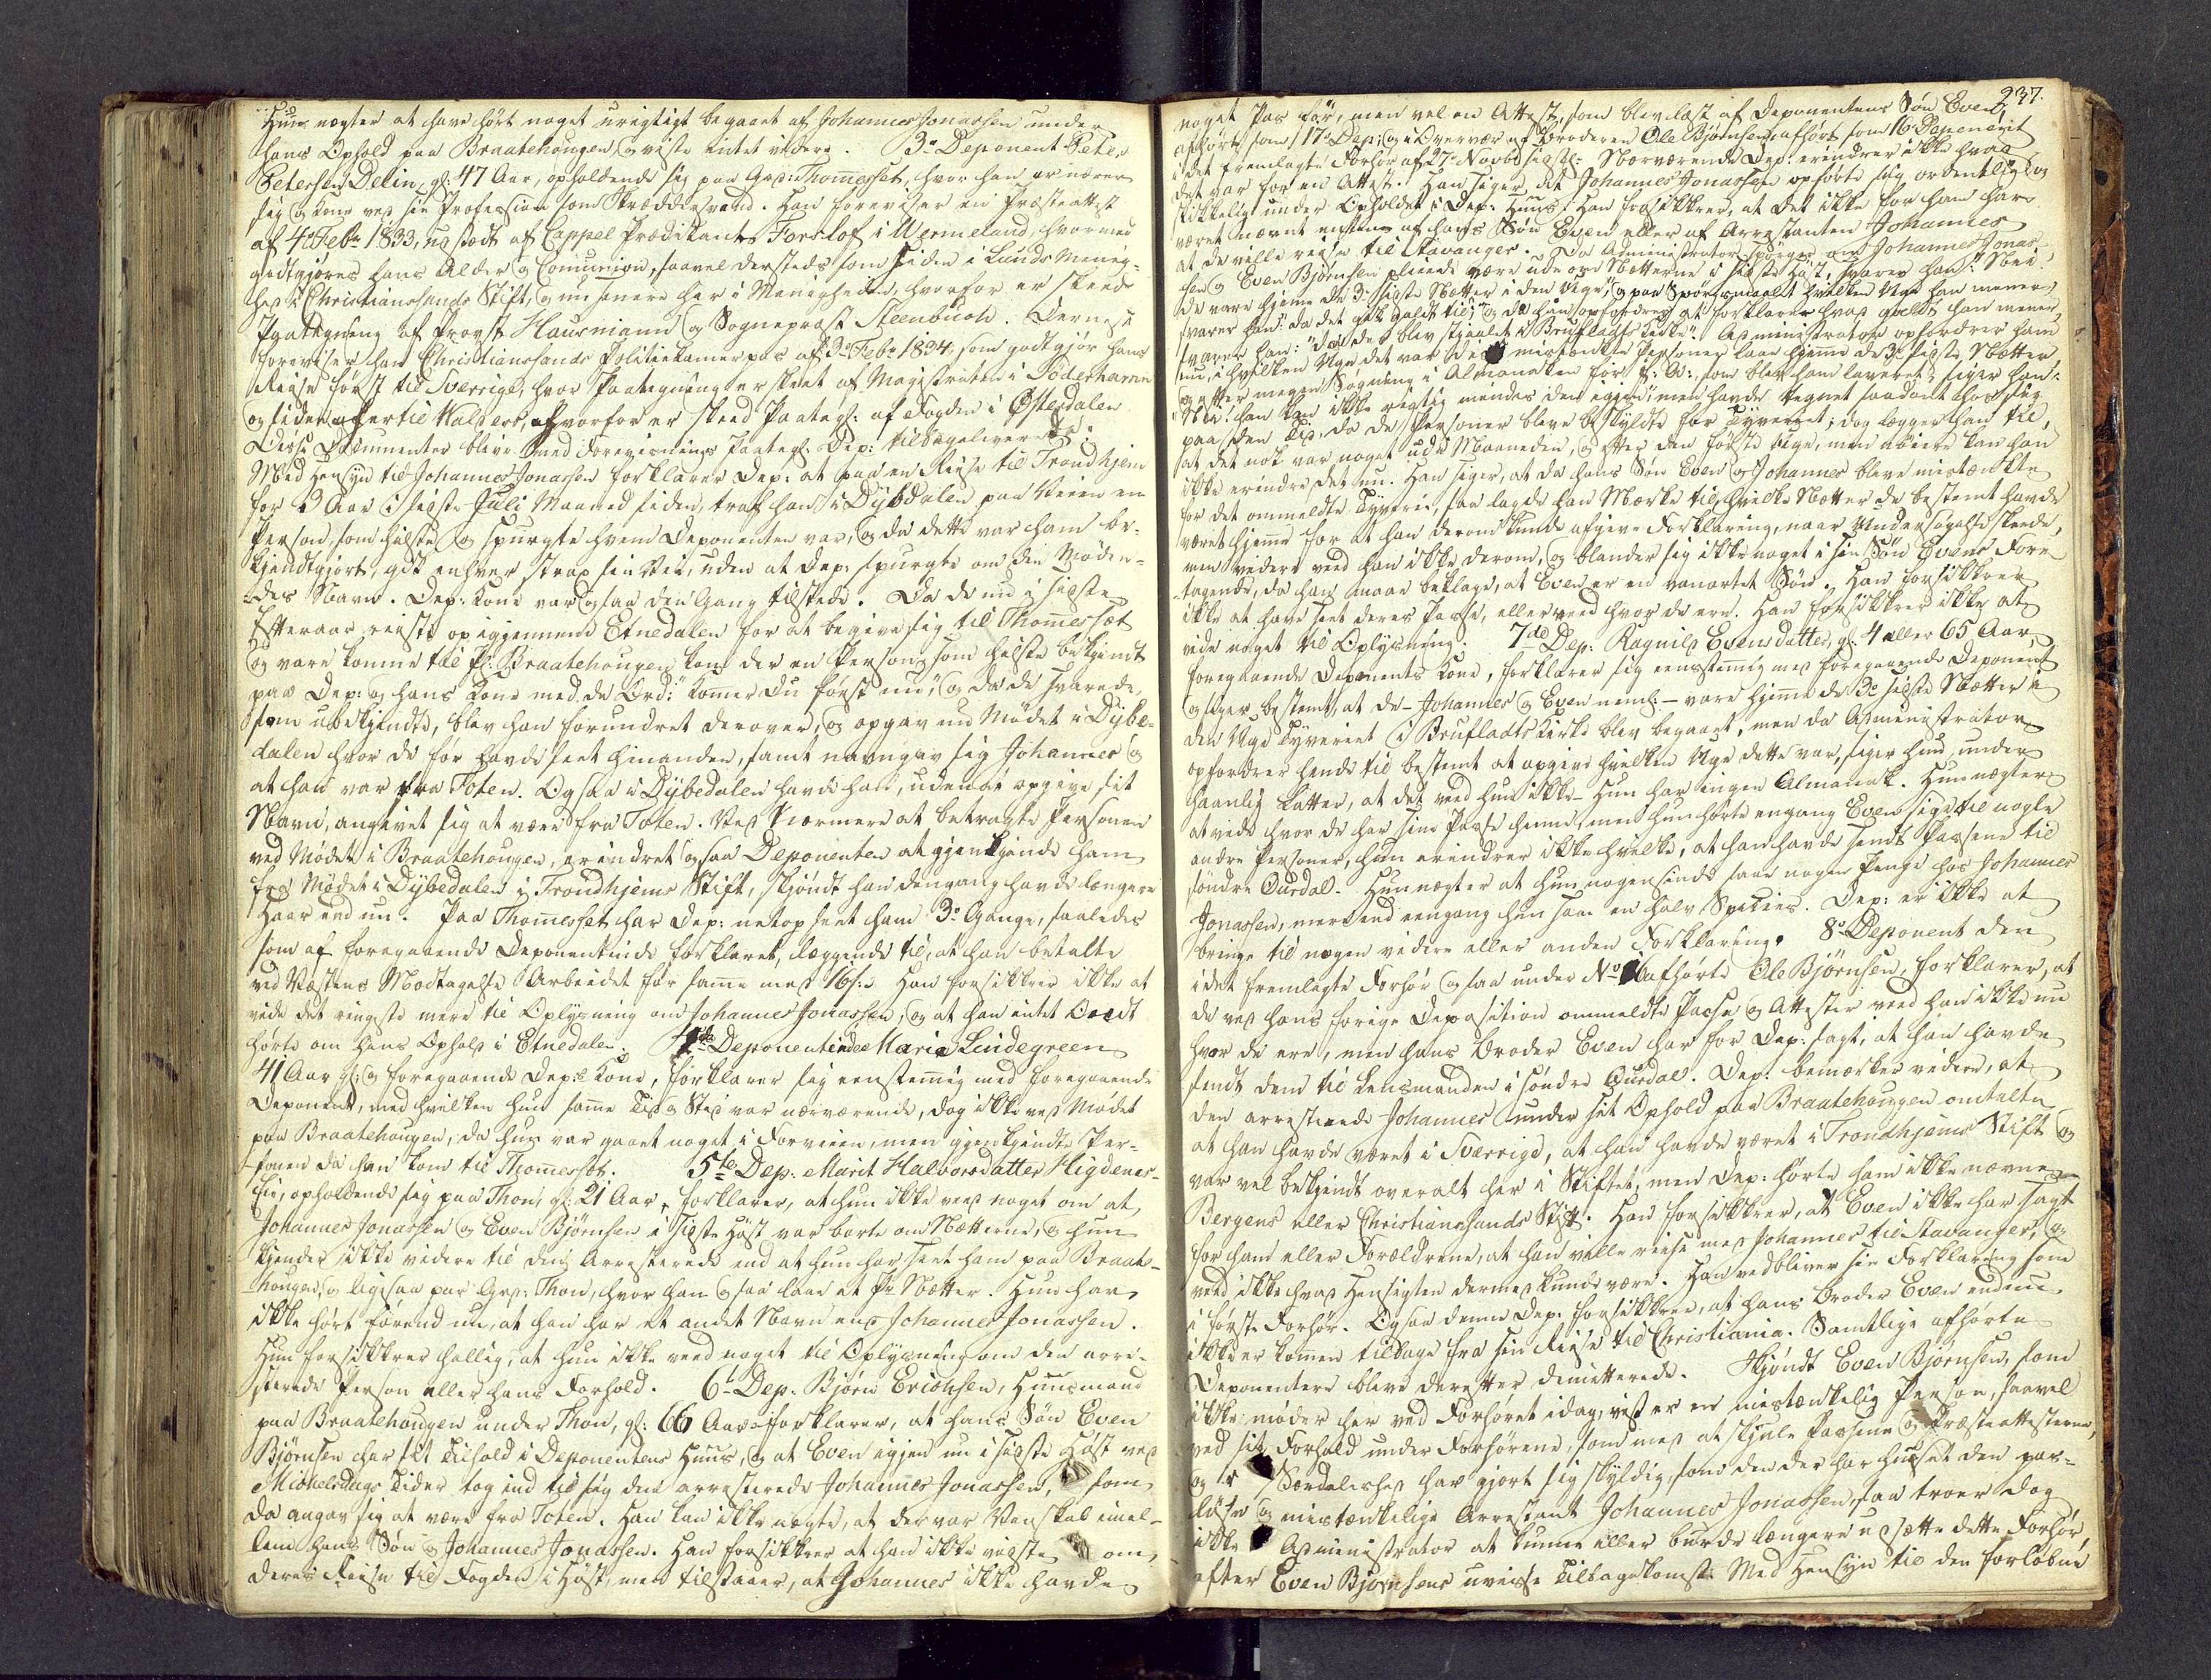 Hun negter at have hørt noget urigtigt begaaet af Johannes Jonassen under
hans Ophold paa Braatehougen og viste intet videre. 3die Deponent Peter
Petersen Delin, gl: 47 Aar, opholdende sig paa Grd: Thomesset, hvor han er nærer
sig og Kone ved sin Profession som Skræddersvend. Han foreviser en Præsteattest
af 4de Febr 1833, udstædt af Cappel Prædikant Forslof i Wermeland, hvormed
godtgjøres hans Alder og Comunion, saavel dersteds som siden i Lunds Menig-
hed i Christianssands Stift, og nu senere her i Menigheden, hvorfor er skeed
Paategning af Provst Hausmann og Sognepræst Steenbuch. Dernæst
foreviser han Christianssands Politiekamerpas af 3de Febr 1834, som godtgjør hans
Reise først til Sverrige, hvor Paategning er skeet af Magistraten i Söderhamn
og siden efter til Walders, hvorfor er skeed Paategn: af Fogden i Østerdalen.
Disse Documenter bleve med Forevisnings Paategn: Dep: tilbageleverede.
Med Hensyn til Johannes Jonassen forklarer Dep: at paa en Reise til Trondhjem
for 2 Aar i sidste Juli Maaned siden, traf han i Dybdalen paa Veien en
Person, som hilste og spurgte hvem Deponenten var, og da dette var ham be-
kjendtgjort, gik enhver strax sin Vei, uden at Dep: spurgte om den Møden-
des Navn. Dep: Kone var ogsaa den Gang tilstede. Da de nu i sidste
Efteraar reiste op igjennem Etnedalen for at begive sig til Thomesset
og vare komne til Pl: Braatehougen kom der en Person, som hilste bekjendt
paa Dep: og hans Kone med de Ord: "Komer Du først nu", og da de svarede,
som ubekjendte, blev han forundret derover, og opgav nu Mødet i Dybe-
dalen hvor de før havde seet hinanden, samt navngav sig Johannes og
at han var fra Toten. Ogsaa i Dybedalen havde han, uden at opgive sit
Navn, angivet sig at være fra Toten. Ved Nærmere at betragte Personen
ved Mødet i Braatehougen, erindret ogsaa Deponenten at gjenkjende ham
fra Mødet i Dybedalen i Trondhjems Stift, skjøndt han dengang havde længere
Haar end nu. Paa Thomesset har Dep: netop seet ham 3de Gange, saaledes
som af foregaaende Deponentinde forklaret, læggende til, at han betalte
ved Vestens Modtagelse Arbeidet for samme med 16 s: Han forsikkrer ikke at
vide det ringeste mere til Oplysning om Johannes Jonassen, og at han intet Ondt
hørte om hans Ophold i Etnedalen. 4de Deponentinde Maria Lindegreen
41 Aar gl: og foregaaende Dep: Kone, forklarer sig eenstemmig med foregaaende
Deponent, med hvilken hun samme Tid og Sted var nærværende, dog ikke ved Mødet
paa Braatehougen, da hun var gaaet noget i Forveien, men gjenkjendte Per-
sonen da han kom til Thomesset. 5te Dep: Marit Halvorsdatter Higdenes-
eie, opholdende sig paa Thon, gl: 21 Aar, forklarer, at hun ikke veed noget om at
Johannes Jonassen og Even Bjørnsen i sidste Høst var borte om Nætterne, og hun
kjender ikke videre til den Arresterede end at hun har seet ham paa Braate-
hougen, og ligesaa paa Grd: Thon, hvor han ogsaa laae et Pr Nætter. Hun har
ikke hørt førend nu, at han har et andet Navn end Johannes Jonassen.
Hun forsikkrer hellig, at hun ikke veed noget til Oplysning om den arre-
sterede Person eller hans Forhold. 6te Dep: Bjørn Erichsen, Huusmand
paa Braatehougen under Thon, gl: 66 Aar, forklarer, at hans Søn Even
Bjørnsen har sit Tilhold i Deponentens Huus, og at Even igjen nu i sidste Høst ved
Mickelsdags Tider tog ind til sig den arresterede Johannes Jonassen, som
da angav sig at være fra Toten. Han kan ikke negte, at der var Venskab imel-
lem hans Søn og Johannes Jonassen. Han forsikkrer at han ikke vidste om
deres Reise til Fogden i Høst, men tilstaaer, at Johannes ikke havde
237.
noget Pas før, men vel en Attest, som blev læst af Deponentens Søn Even,
afhørt som 17de Dep: og i Overvær af Broderen Ole Bjørnsen, afhørt som 16 Deponent
i det fremlagte Forhør af 27de Novbr sidstl: Nærværende Dep: erindrer ikke hvad
det var for en Attest. Han siger, at Johannes Jonassen opførte sig ordentlig og
skikkelig under Opholdet i Dep: Huus. Han forsikkrer, at det ikke for ham har
været nævnt enten af hans Søn Even eller af Arrestanten Johannes
at de ville reise til Stavanger. Da Administrator spørger om Johannes Jonas-
sen og Even Bjørnsen pleiede være ude om Nætterne i sidste Høst, svarer han: "Nei!
de vare hjemme de 3 sidste Nætter i den Uge", og paa Spørgsmaalet hvilken Uge han mener,
svarer han: "da det gik galt til", og da han opfordres at forklare hvad galt han mener,
svarer han: "da der blev stjaalet i Bruflads Kirke". Administrator opfordrer ham
nu, i hvilken Uge det var de mistænkte Personer laae hjemme de 3de sidste Nætter
og efter megen Søgning i Almanaken for f: A:, som blev ham leveret, siger han:
"Nei! han kan ikke rigtig mindes den igjen", men havde tegnet saadant hos sig
paa den Tid, da de Personer bleve beskyldte for Tyveriet; dog lægger han til,
at det nok var noget ud i Maaneden, og efter den første Uge, men nøiere kan han
ikke erindre det nu. Han siger, at da hans Søn Even og Johannes bleve mistænkte
for det ommeldte Tyverie, saa lagde han Mærke til hvilke Nætter de bestemt havde
været hjemme for at han derom kunde afgive Forklaring, naar Undersøgelse skeede,
men videre veed han ikke derom, og blander sig ikke noget i sin Søn Evens Fore-
tagende, da han maae beklage, at Even er en vanartet Søn. Han forsikkrer
ikke at have seet deres Passe, eller veed hvor de ere. Han forsikkrer ikke at
vide noget til Oplysning. 7de Dep: Ragnild Evensdatter, gl: 4 eller 65 Aar,
foregaaende Deponents Kone, forklarer sig eensstemmig med foregaaende Deponent
og siger bestemt, at de – Johannes og Even neml: – vare hjemme de 3de sidste Nætter i
den Uge Tyveriet i Bruflads Kirke blev begaaet, men da Administrator
opfordrer hende til bestemt at opgive hvilken Uge dette var, siger hun, under
haanlig Latter, at det veed hun ikke – Hun har ingen Almanak. Hun negter
at vide hvor de har sine Passe henne, men hun hørte engang Even sige til nogle
andre Personer, hun erindrer ikke hvilke, at han havde sendt Passene til
søndre Ourdal. Hun negter at hun nogensinde saae nogen Penge hos Johannes
Jonassen, mere end eengang hun saae en halv Species. Dep: er ikke at
bringe til nogen videre eller anden Forklaring. 8de Deponent den
i det fremlagte Forhør ogsaa under No afhørte Ole Bjørnsen, forklarer, at
de ved hans forige Deposition ommeldte Passe og Attester veed han ikke nu
hvor de ere, men hans Broder Even har for Dep: sagt, at han havde
sendt dem til Lensmanden i søndre Ourdal. Dep: bemærker videre, at
den arresterede Johannes under sit Ophold paa Braatehougen omtalte
at han havde været i Sverrige, at han havde været i Trondhjems Stift og
var vel bekjendt overalt her i Stiftet, men Dep: hørte ham ikke nævne
Bergens eller Christianssands Stift. Han forsikkrer, at Even ikke har sagt
for ham eller Forældrene, at han ville reise med Johannes til Stavanger, og
veed ikke hvad Hensigten dermed kunde være. Han vedbliver sin Forklaring som
i første Forhør. Ogsaa denne Dep: forsikkrer, at hans Broder Even endnu
ikke er kommen tilbage fra sin Reise til Christiania. Samtlige afhørte
Deponenter bleve derefter dimitterede. Skjøndt Even Bjørnsen, som
ikke møder her ved Forhøret idag, vist er en mistænkelig Person, saavel
ved sit Forhold under Forhørene, som med at skjule Passene og Præsteattesterne,
og i Særdeleshed har gjort sig skyldig, som den der har huuset den pas-
løse og mistænkelige Arrestant Johannes Jonassen, saa troer dog
ikke Administrator at kunne eller burde længere udsætte dette Forhør,
efter Even Bjørnsens uvisse Tilbagekomst. Med Hensyn til den forløbne